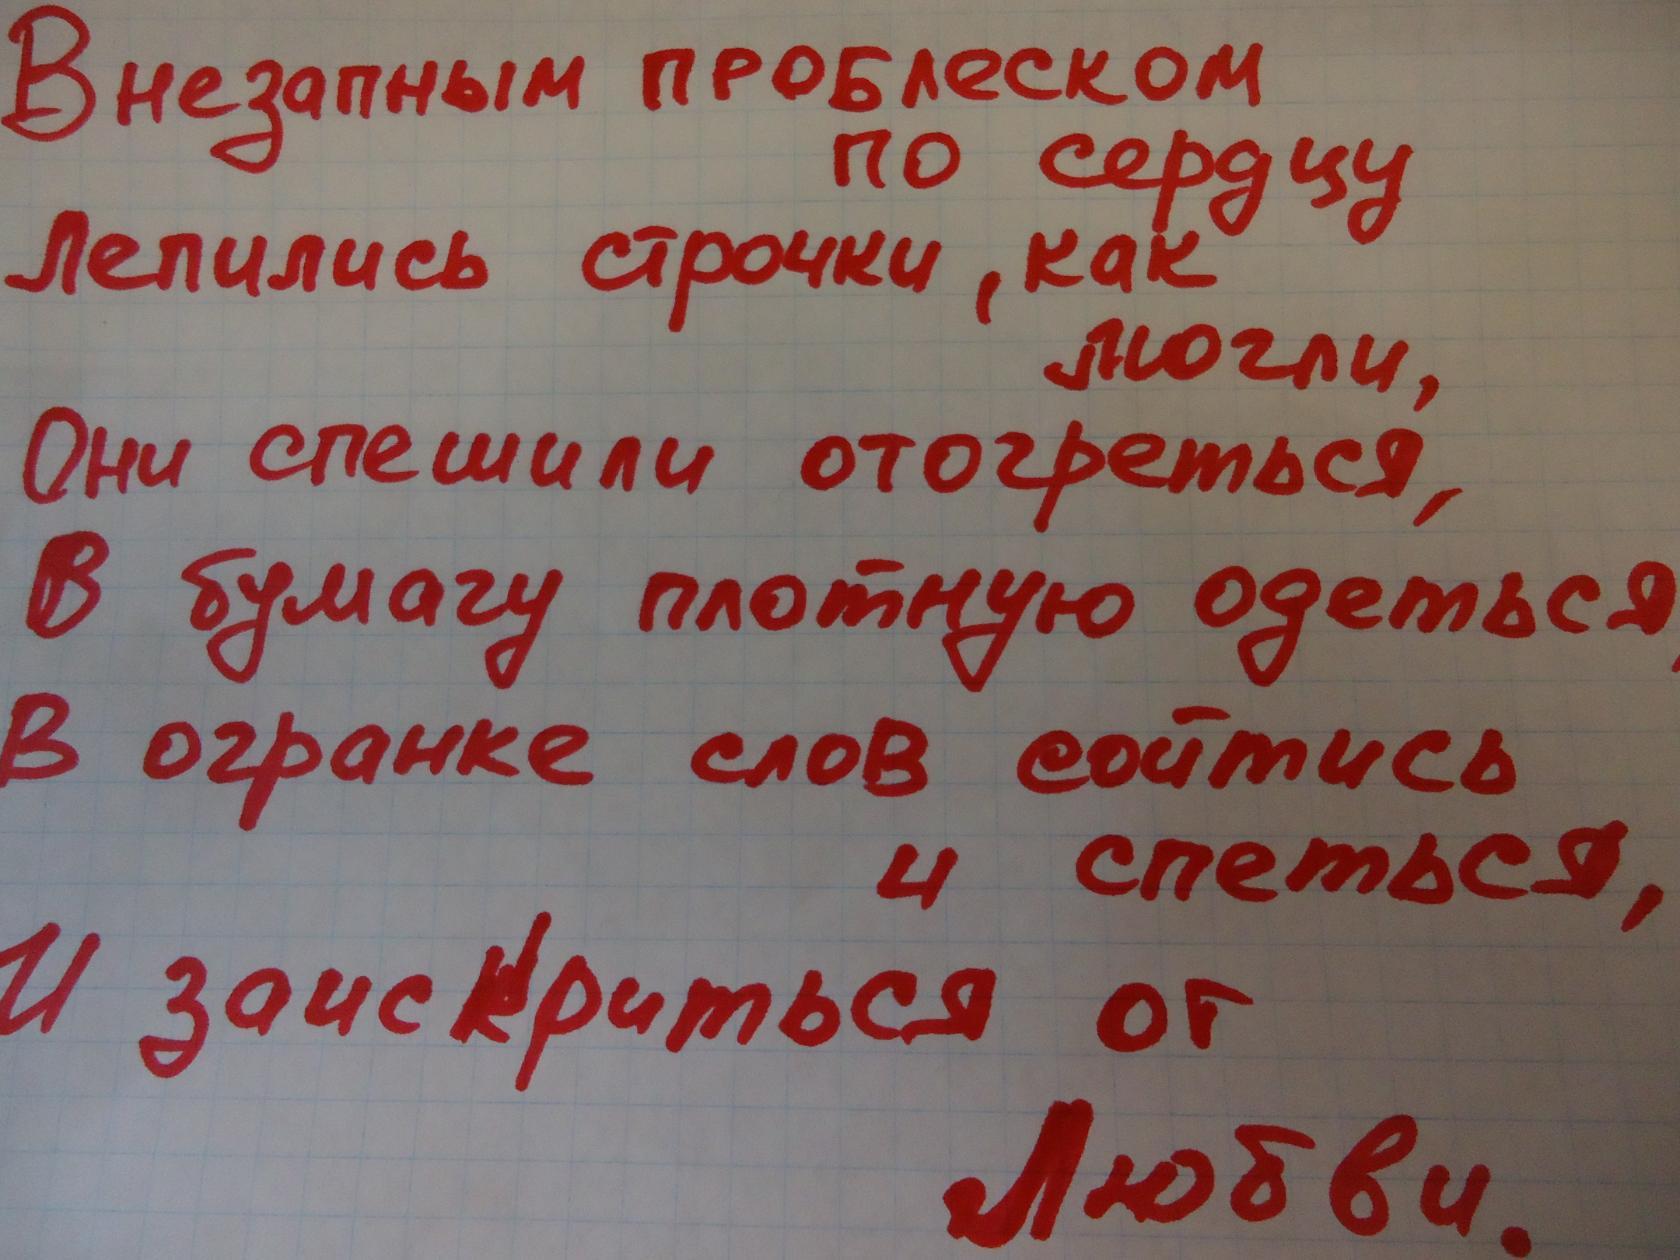 Внезапным проблеском
по сердцу
Лепились строчки, как
могли,
Они спешили отогреться,
В бумагу плотную одеться,
В огранке слов сойтись
и спеться,
И заискриться от
Любви.